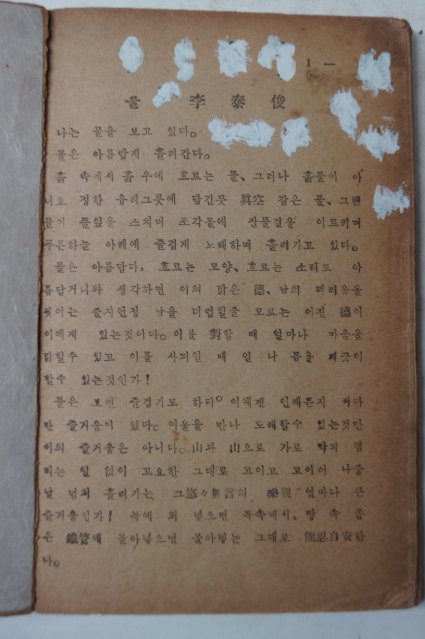 1 —
물 李泰俊
나는 물을 보고 있다。
물은 아름답게 흘러간다。
흙 속에서 흙 우에 흐르는 물、그러나 흙물이 아
니요 정한 유리그릇에 담긴듯 眞空 같은 물、그런
물이 풀잎을 스치며 조각돌에 잔물결을 이르키며
푸른하늘 아래에 즐겁게 노래하며 흘러가고 있다。
물은 아름답다. 흐르는 모양、흐르는 소리도 아
름답거니와 생각하면 이의 맑은 德、남의 더러움을
씻어는 줄지언정 남을 더럽힐줄 모르는 어진 德이
이에게 있는것이다。이를 對할 때 얼마나 마음을
맑힐수 있고 이를 사괴일 때 얼 나 몸을 깨끗이
할수 있는것인가!
물은 보면 즐겁기도 하다。이에겐 언제든지 커다
란 즐거움이 있다. 여울을 만나 노래할수 있는것만
이 의 즐거움은 아니다。山과 山으로 가로 막되 덤
비는 일 없이 고요한 그대로 고이고 고이어 나중
날 넘쳐 흘러가는 그悠々無言의 樂觀 얼마나 큰
즐거움인가! 독에 퍼 넣으면 독속에서、땅 속 좁
은 鐵管에 몰아넣으면 몰아넣는 그대로 能忍自安한
다。